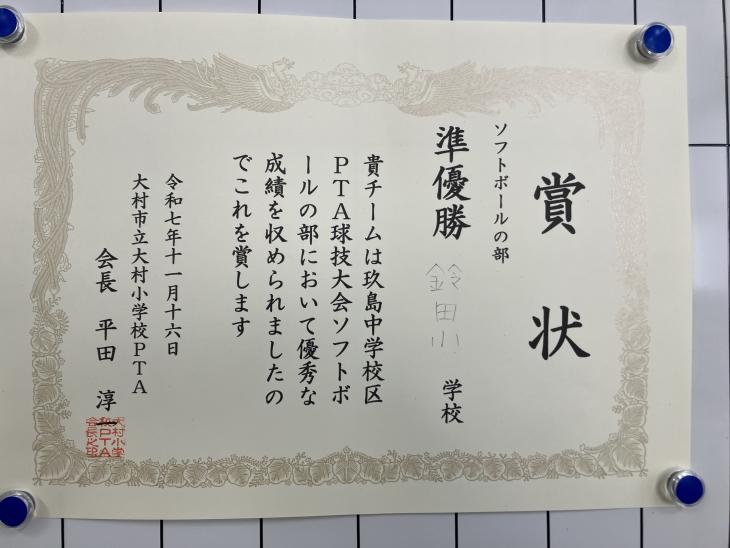 賞状
ソフトボールの部
準優勝 鈴田小 学校
貴チームは玖島中学校区
PTA球技大会ソフトボ
ールの部において優秀な
成績を収められましたの
でこれを賞します
令和七年十一月十六日
大村市立大村小学校PTA
会長 平田 淳
大村小学
校PTA
会長之印